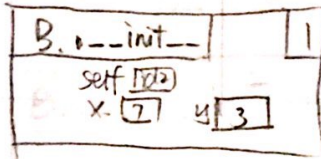 B.__init__ 1
self id2
x 7 y 3